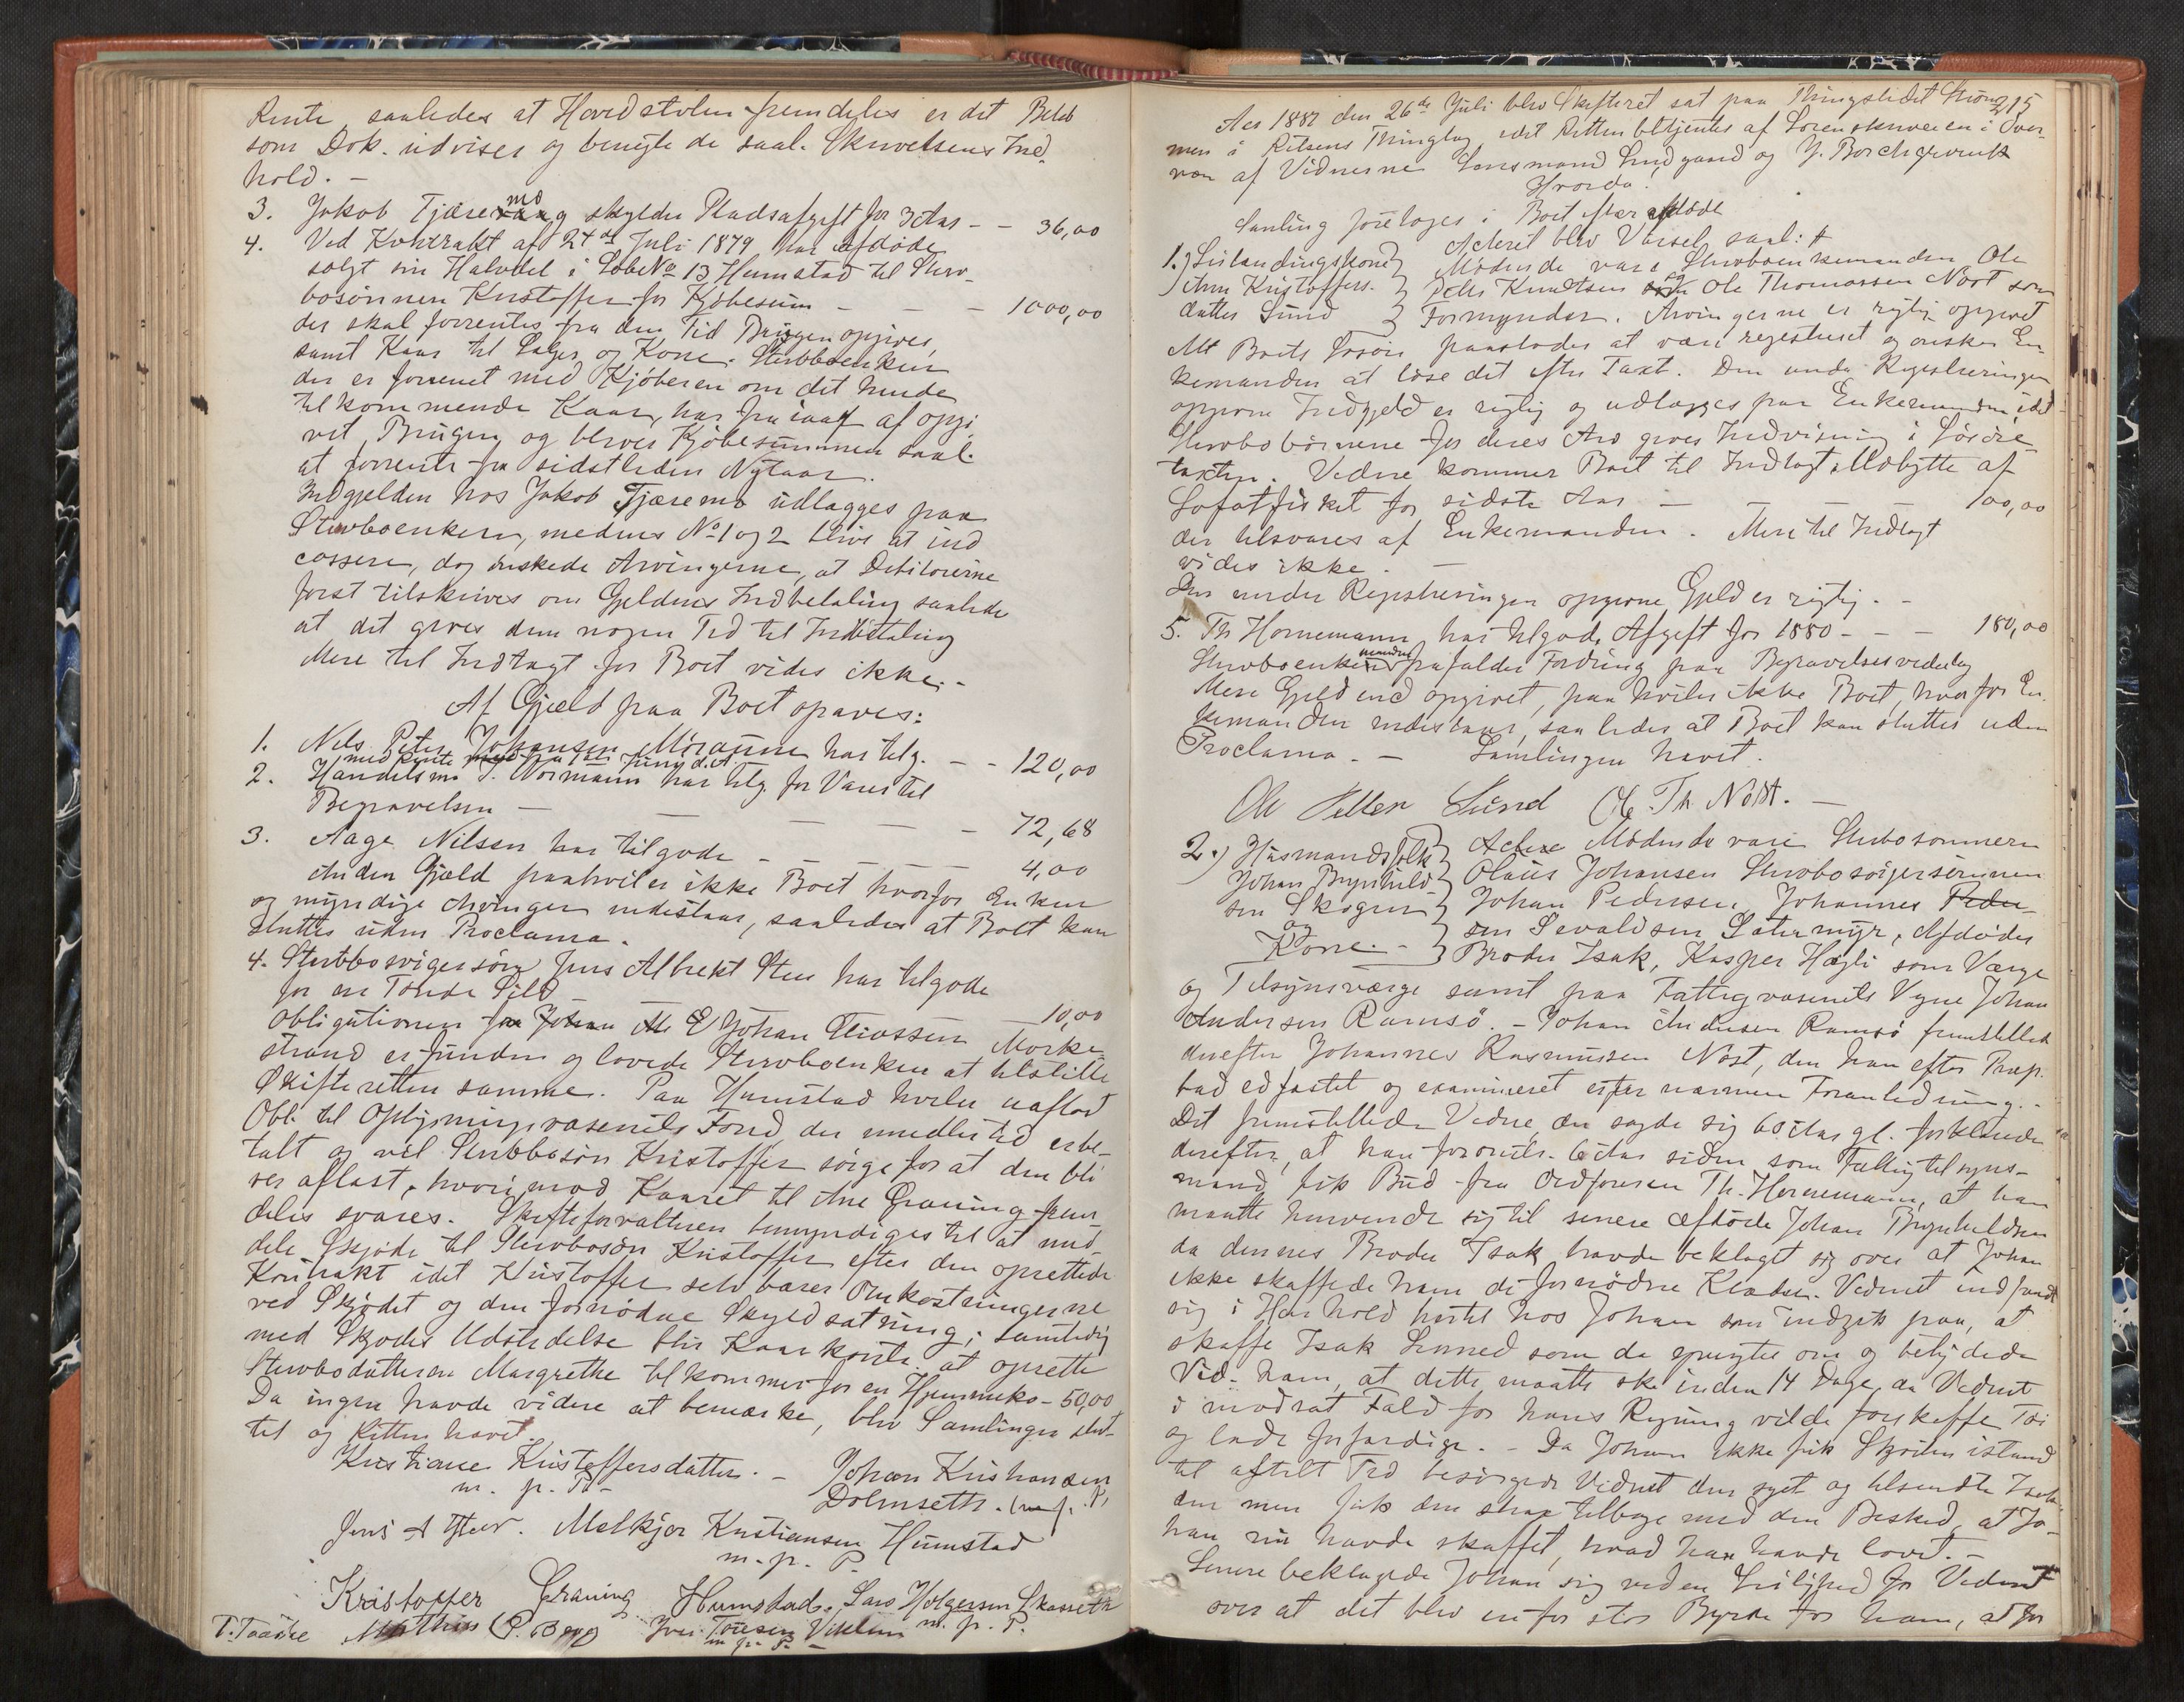 Rente, saaledes at Hovedstolen fremdeles er det Beløb
som Dok. udviser og benegte de saal. Skrivelsens Ind-
hold. -
3. Jakob Tjæremo skylder Pladsafgift for 3 Aar - - 36,00
4. Ved Kontrakt af 24de Juli 1879 har afdøde
solgt sin Halvdel i Løbe No 13 Humstad til Sterv-
bosønnen Kristoffer for Kjøbesum - - - 1000,00
der skal forrentes fra den Tid Brugen opgives,
samt Kaar til Sælger og Kone. Stervboenken
der er forenet med Kjøberen om det hende
tilkommende Kaar, har fra iaar af opgi-
vet Brugen og bliver Kjøbesummen saal.
at forrente fra sidstleden Nytaar.
Indgjelden hos Jakob Tjæremo udlægges paa
Stervboenken, medens No 1 og 2 blive at ind
cassere, dog ønskede Arvingerne, at Debitorerne
først tilskrives om Gjeldens Indbetaling saalede
at det gives dem nogen Tid til Indbetaling
Mere til Indtægt for Boet vides ikke. -
Af Gjæld paa Boet opgaves:
1. Nels Peter Johansen har tilg. - - 120,00
med Rente fra 1ste Juny d.A.
2. Handelsm. Normann har tilg. for Varer til
Begravelsen - - - - - 72,68
3. Aage Nilsen har tilgode - - - - 4,00
Anden Gjæld paahviler ikke Boet hvorfor Enken
og myndige Arvinger indestaar, saaledes at Boet kan
sluttes uden Proclama.
4. Stervbosvigersøn Jens Albrekt Steen har tilgode
for en Tønde Sild - - - 10,00
Obligationen fra Johan Eliassen Morke-
strand er funden og lovede Stervboenken at tilstille
Skifteretten samme. Paa Humstad hviler uaflæst
Obl. til Oplysningsvæsenets Fond, der imedlertid er be-
talt og vil Stervbosøn Kristoffer sørge for at den bli-
ver aflæst, hvorimod Kaaret til Ane Graning frem-
deles svares. Skifteforvalteren bemyndiges til at med-
dele Skjøde til Stervbosøn Kristoffer efter den oprettede
Kontrakt idet Kristoffer selv bærer Omkostningerne
ved Skjødet og den fornødne Skyldsætning; samtidig
med Skjødes Udstedelse blir Kaarkontr. at oprette
Stervbodatteren Margrethe tilkommer for en Hjemmeko - 50,00
Da ingen havde videre at bemærke, blev Samlingen slut-
tet og Retten hævet.
Kristiane Kristoffersdatter. - Johan Kristiansen
m. p. P. Dolmseth. m. p. P.
Jens A Steen. Melkjor Kristiansen Humstad
m. p. P.
Kristoffer Graning Humstad. Lars Holgersen Skasseth
T. Taadse Mathias P. Berg Iver Toresen m. p. P.
m. p. P. -
315
Aar 1881 den 26de Juli blev Skifteret sat paa Thingstedet Strøm-
men i Ritsens Thinglag idet Retten betjentes af Sorenskriveren i Over-
vær af Vidnerne Lensmand Lindgaard og J. Borchgrevink
Hvorda:
Samling foretoges i Boet efter afdøde
Acteret blev Varsel saal:
1.) Selandingskone Ane Kristoffers-datter Sund
Mødende vare Stervboenkemanden Ole
Petter Knudtsen og Ole Thomassen Nøst som
Formynder. Arvingerne er rigtig opgivet
Alt Boets Løsøre paastodes at være registreret og ønsker En-
kemanden at løse det efter Taxt. Den under Registreringen
opgivne Indgjeld er rigtig og udlægges paa Enkemanden idet
Stervbobørnene for deres Arv gives Indvisning i Løsøre-
taxten. Videre kommer Boet til Indtægt Udbytte af
Lofotfisket for sidste Aar - - - 100,00
der tilsvares af Enkemanden. Mere til Indtægt
vides ikke. -
Den under Registreringen opgivne Gjeld er rigtig. -
5. Th Hornemann har tilgode Afgift for 1880 - - - 180,00
Stervboenkemanden frafalder Fordring paa Begravelsesvederlag
Mere Gjeld end opgivet, paahviler ikke Boet, hvorfor En-
kemanden indestaar, saaledes at Boet kan sluttes uden
Proclama. - Samlingen hævet.
Ole Petter Sund Ole Th. Nøst. -
2.) Husmandsfolk Johan Brynhildsen Skogen og Kone. -
Mødende vare Stervbosønnen
Olaus Johansen Stervbosvigersønnen
Johan Pedersen, Johannes
Sevaldsen Sætermyr, Afdødes
Broder Isak, Kasper Hægli som Værge
og Tilsynsværge samt paa Fattigvæsenets Vegne Johan
Andersen Ramsø. - Johan Andersen Ramsø fremstillede
derefter Johannes Rasmussen Nøst, den han efter Præp.
bad edfæstet og examineret efter nærmere Foranledning. -
Det fremstillede Vidne, der sagde sig 60 Aar gl. forklarede
derefter, at han for omtr. 6 Aar siden som Fattigtilsyns-
mand fik Bud fra Ordføreren Th. Hornemann, at han
maatte henvende sig til senere afdøde Johan Brynhildsen
da dennes Broder Isak havde beklaget sig over at Johan
ikke skaffede ham de fornødne Klæder. Vidnet indfandt
sig i Henhold hertil hos Johan som indgik paa, at
skaffe Isak Linned som da spurgtes om og betydede
Vid. ham, at dette maatte ske inden 14 Dage, da Vidnet
i modsat Fald for hans Regning vilde forskaffe Tøi
og lade forfærdige. - Da Johan ikke fik Skjorten istand
til aftalt Tid besørgede Vidnet den syet og tilsendte Isak
den men fik den strax tilbage med den Besked, at Jo-
han nu havde skaffet, hvad han havde lovet. -
Senere beklagede Johan sig ved en Leilighed for Vidnet
over at det blev en for stor Byrde for ham, at for